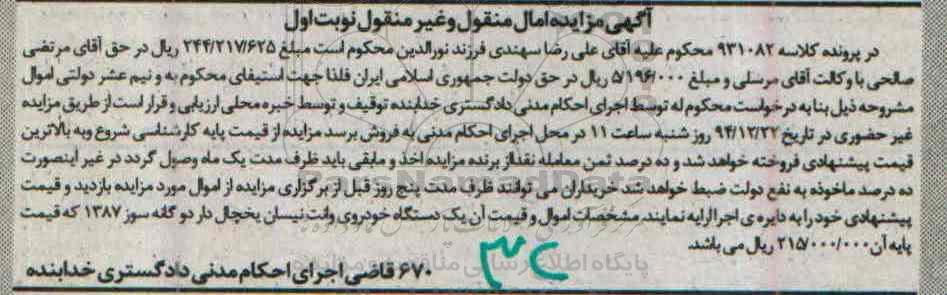 آگهی مزایده اموال منقول و غیر منقول نوبت اول
در پرونده کلاسه ۹۳۱۰۸۲ محکوم علیه آقای علی رضا سهندی فرزند نورالدین محکوم است مبلغ ۲۴۴/۲۱۷/۶۲۵ ریال در حق آقای مرتضی
صالحی با وکالت آقای مرسلی و مبلغ ۵/۱۹۶/۰۰۰ ریال در حق دولت جمهوری اسلامی ایران فلذا جهت استیفای محکوم به و نیم عشر دولتی اموال
مشروحه ذیل بنا به درخواست محکوم له توسط اجرای احکام مدنی دادگستری خدابنده توقیف و توسط خبره محلی ارزیابی و قرار است از طریق مزایده
غیر حضوری در تاریخ ۹۴/۱۲/۲۲ روز شنبه ساعت ۱۱ در محل اجرای احکام مدنی به فروش برسد مزایده از قیمت پایه کارشناسی شروع وبه بالاترین
قیمت پیشنهادی فروخته خواهد شد و ده درصد ثمن معامله نقدا از برنده مزایده اخذ و مابقی باید ظرف مدت یک ماه وصول گردد در غیر اینصورت
ده درصد ماخوذه به نفع دولت ضبط خواهد شد خریداران می توانند ظرف مدت پنج روز قبل از برگزاری مزایده از اموال مورد مزایده بازدید و قیمت
پیشنهادی خود را به دایره ی اجرا ارایه نمایند. مشخصات اموال و قیمت آن یک دستگاه خودروی وانت نیسان یخچال دار دو گانه سوز ۱۳۸۷ که قیمت
پایه آن ۲۱۵/۰۰۰/۰۰۰ ریال می باشد.
۶۷۰ قاضی اجرای احکام مدنی دادگستری خدابنده
ParsNamadData
پایگاه اطلاع رسانی مناقصه و مزایده